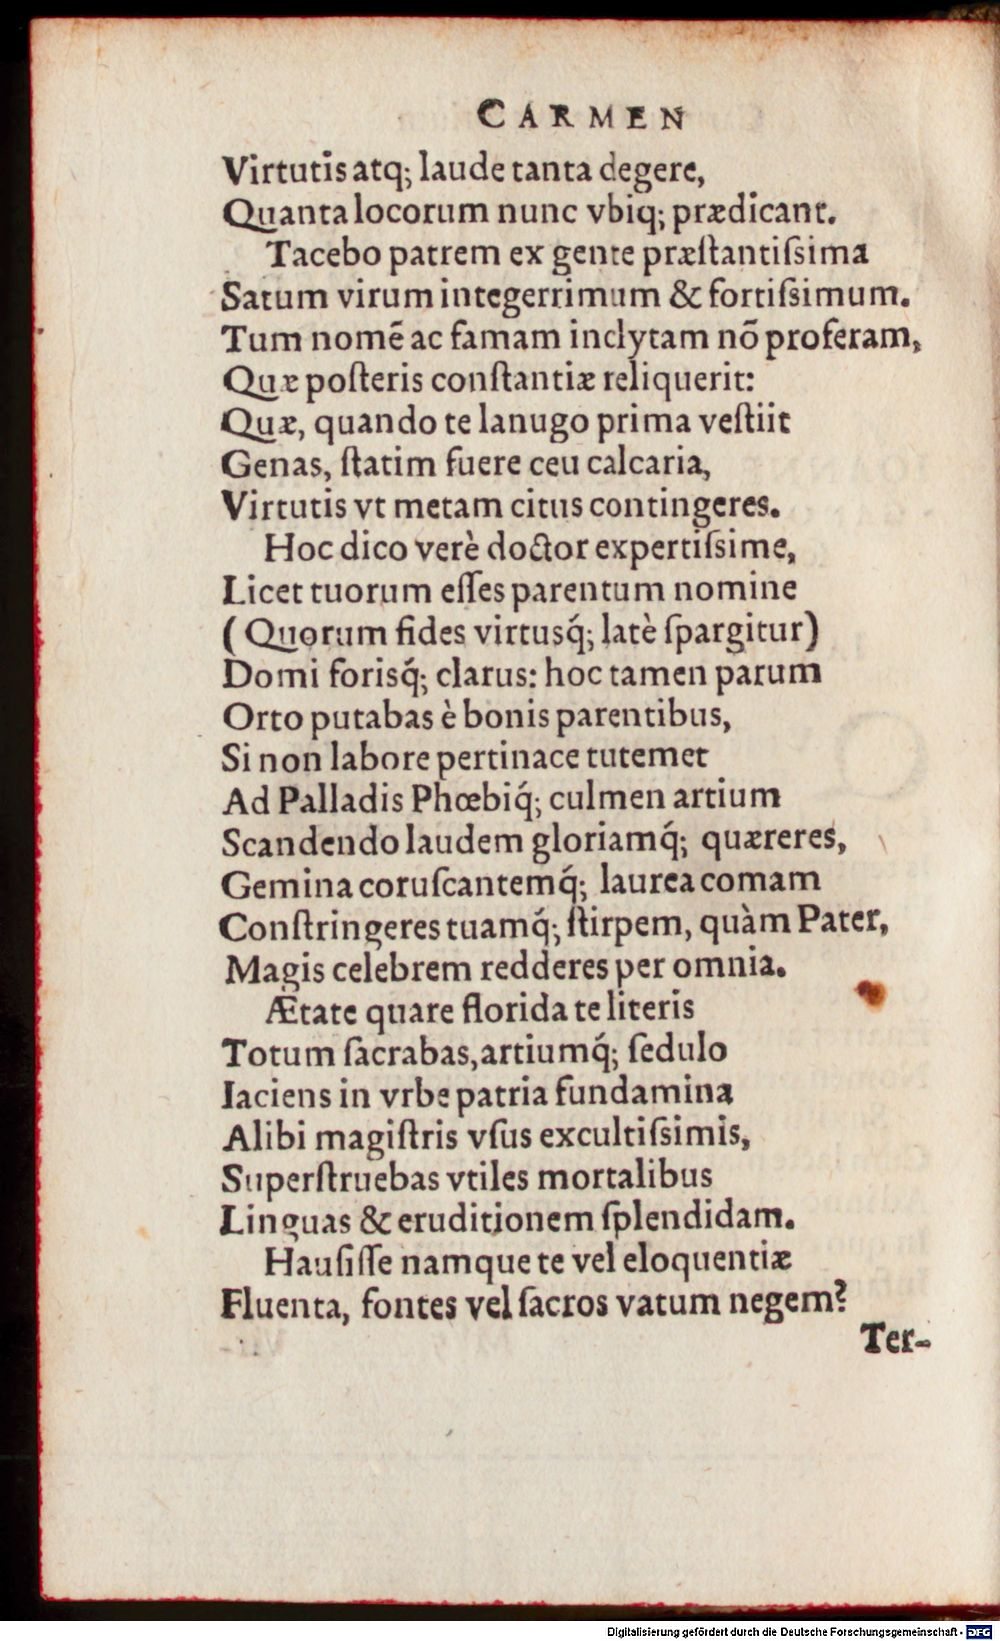 CARMEN
Virtutis atq; laude tanta degere,
Quanta locorum nunc vbiq; prædicant.
Tacebo patrem ex gente præſtantiſsima
Satum virum integerrimum & fortiſsimum.
Tum nomẽ ac famam inclytam nõ proferam,
Quæ poſteris conſtantiæ reliquerit:
Quæ, quando te lanugo prima veſtiit
Genas, ſtatim fuere ceu calcaria,
Virtutis vt metam citus contingeres.
Hoc dico verè doctor expertiſsime,
Licet tuorum eſſes parentum nomine
(Quorum fides virtusq́; latè ſpargitur)
Domi forisq́; clarus: hoc tamen parum
Orto putabas è bonis parentibus,
Si non labore pertinace tutemet
Ad Palladis Phœbiq́; culmen artium
Scandendo laudem gloriamq́; quæreres,
Gemina coruſcantemq́; laurea comam
Conſtringeres tuamq́; ſtirpem, quàm Pater,
Magis celebrem redderes per omnia.
Ætate quare florida te literis
Totum ſacrabas, artiumq́; ſedulo
Iaciens in vrbe patria fundamina
Alibi magiſtris vſus excultiſsimis,
Superſtruebas vtiles mortalibus
Linguas & eruditionem ſplendidam.
Hauſiſſe namque te vel eloquentiæ
Fluenta, fontes vel ſacros vatum negem?
Ter-
Digitalisierung gefördert durch die Deutsche Forschungsgemeinschaft - DFG